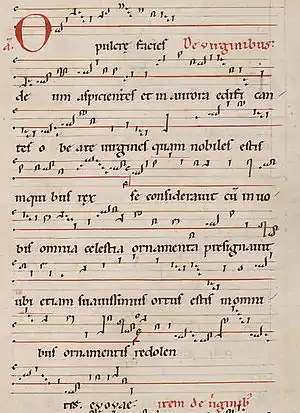 a. O pulcre facies De virginibus.
de um aspicientes et in aurora edifi can
tes o be ate virgines quam nobiles estis
in qui bus rex se consideravit cu in vo
bis omnia celestia ornamenta presignavit
ubi etiam suavissimus ortus estis in omni
bus ornamentis redolen
tis. evovae. item de virginib